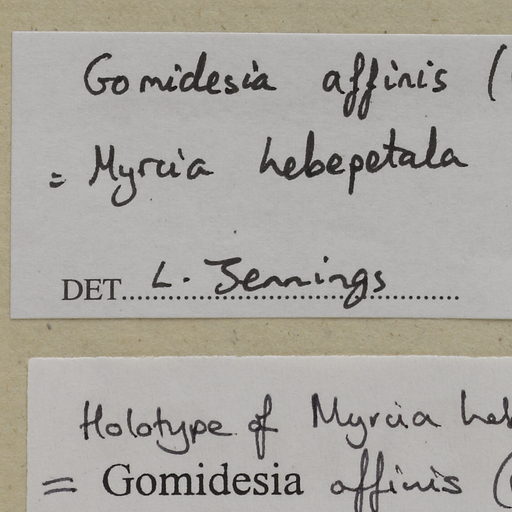 Gomidesia affinis (
= Myrcia hebepetala
DET. L. Jennings
Holotype of Myrcia heb
= Gomidesia affinis (